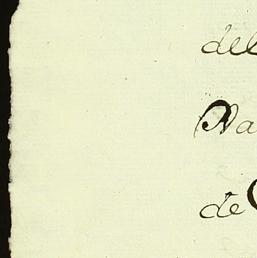 del
Na
de